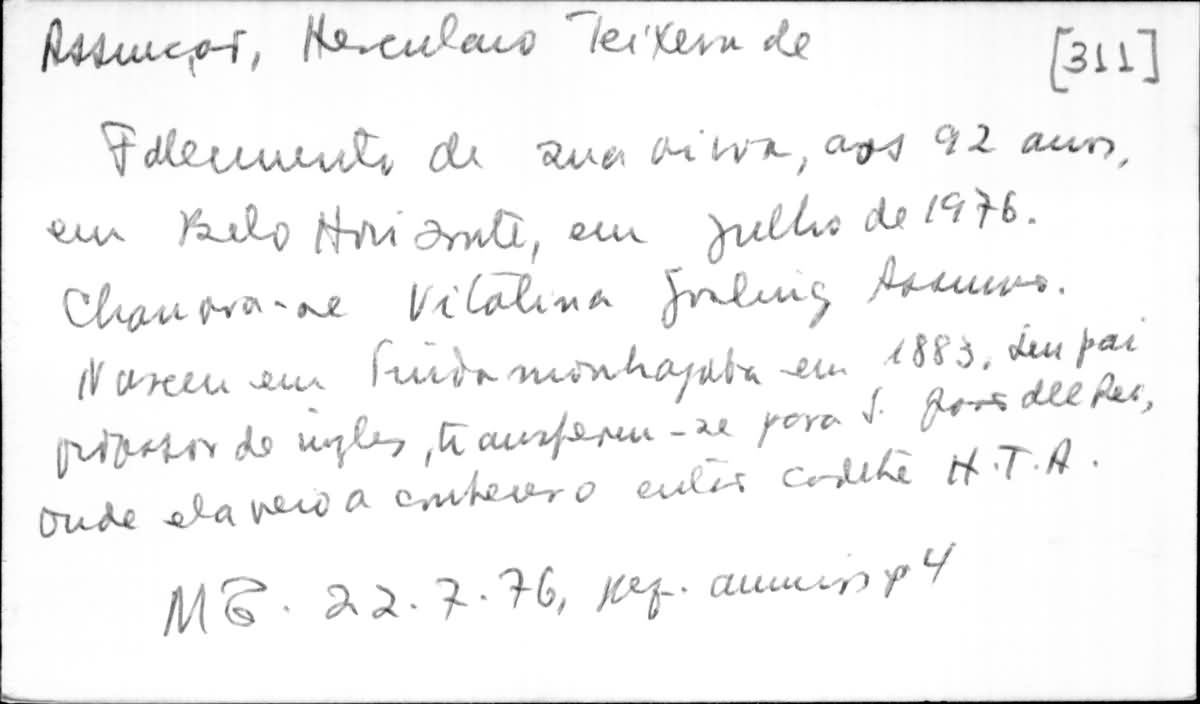 Assunção, Herculano Teixeira de [311]
Falecimento de sua viuva, aos 92 anos,
em Belo Horizonte, em julho de 1976.
Chamava-se Vitalina Assunção.
Nasceu em Pindamonhagaba em 1883. Seu pai
professor de ingles, transferiu-se para S. João del Rei,
onde ela veio a conhecer o então cadete H.T.A.
22.7.76, peq. anuncios p 4